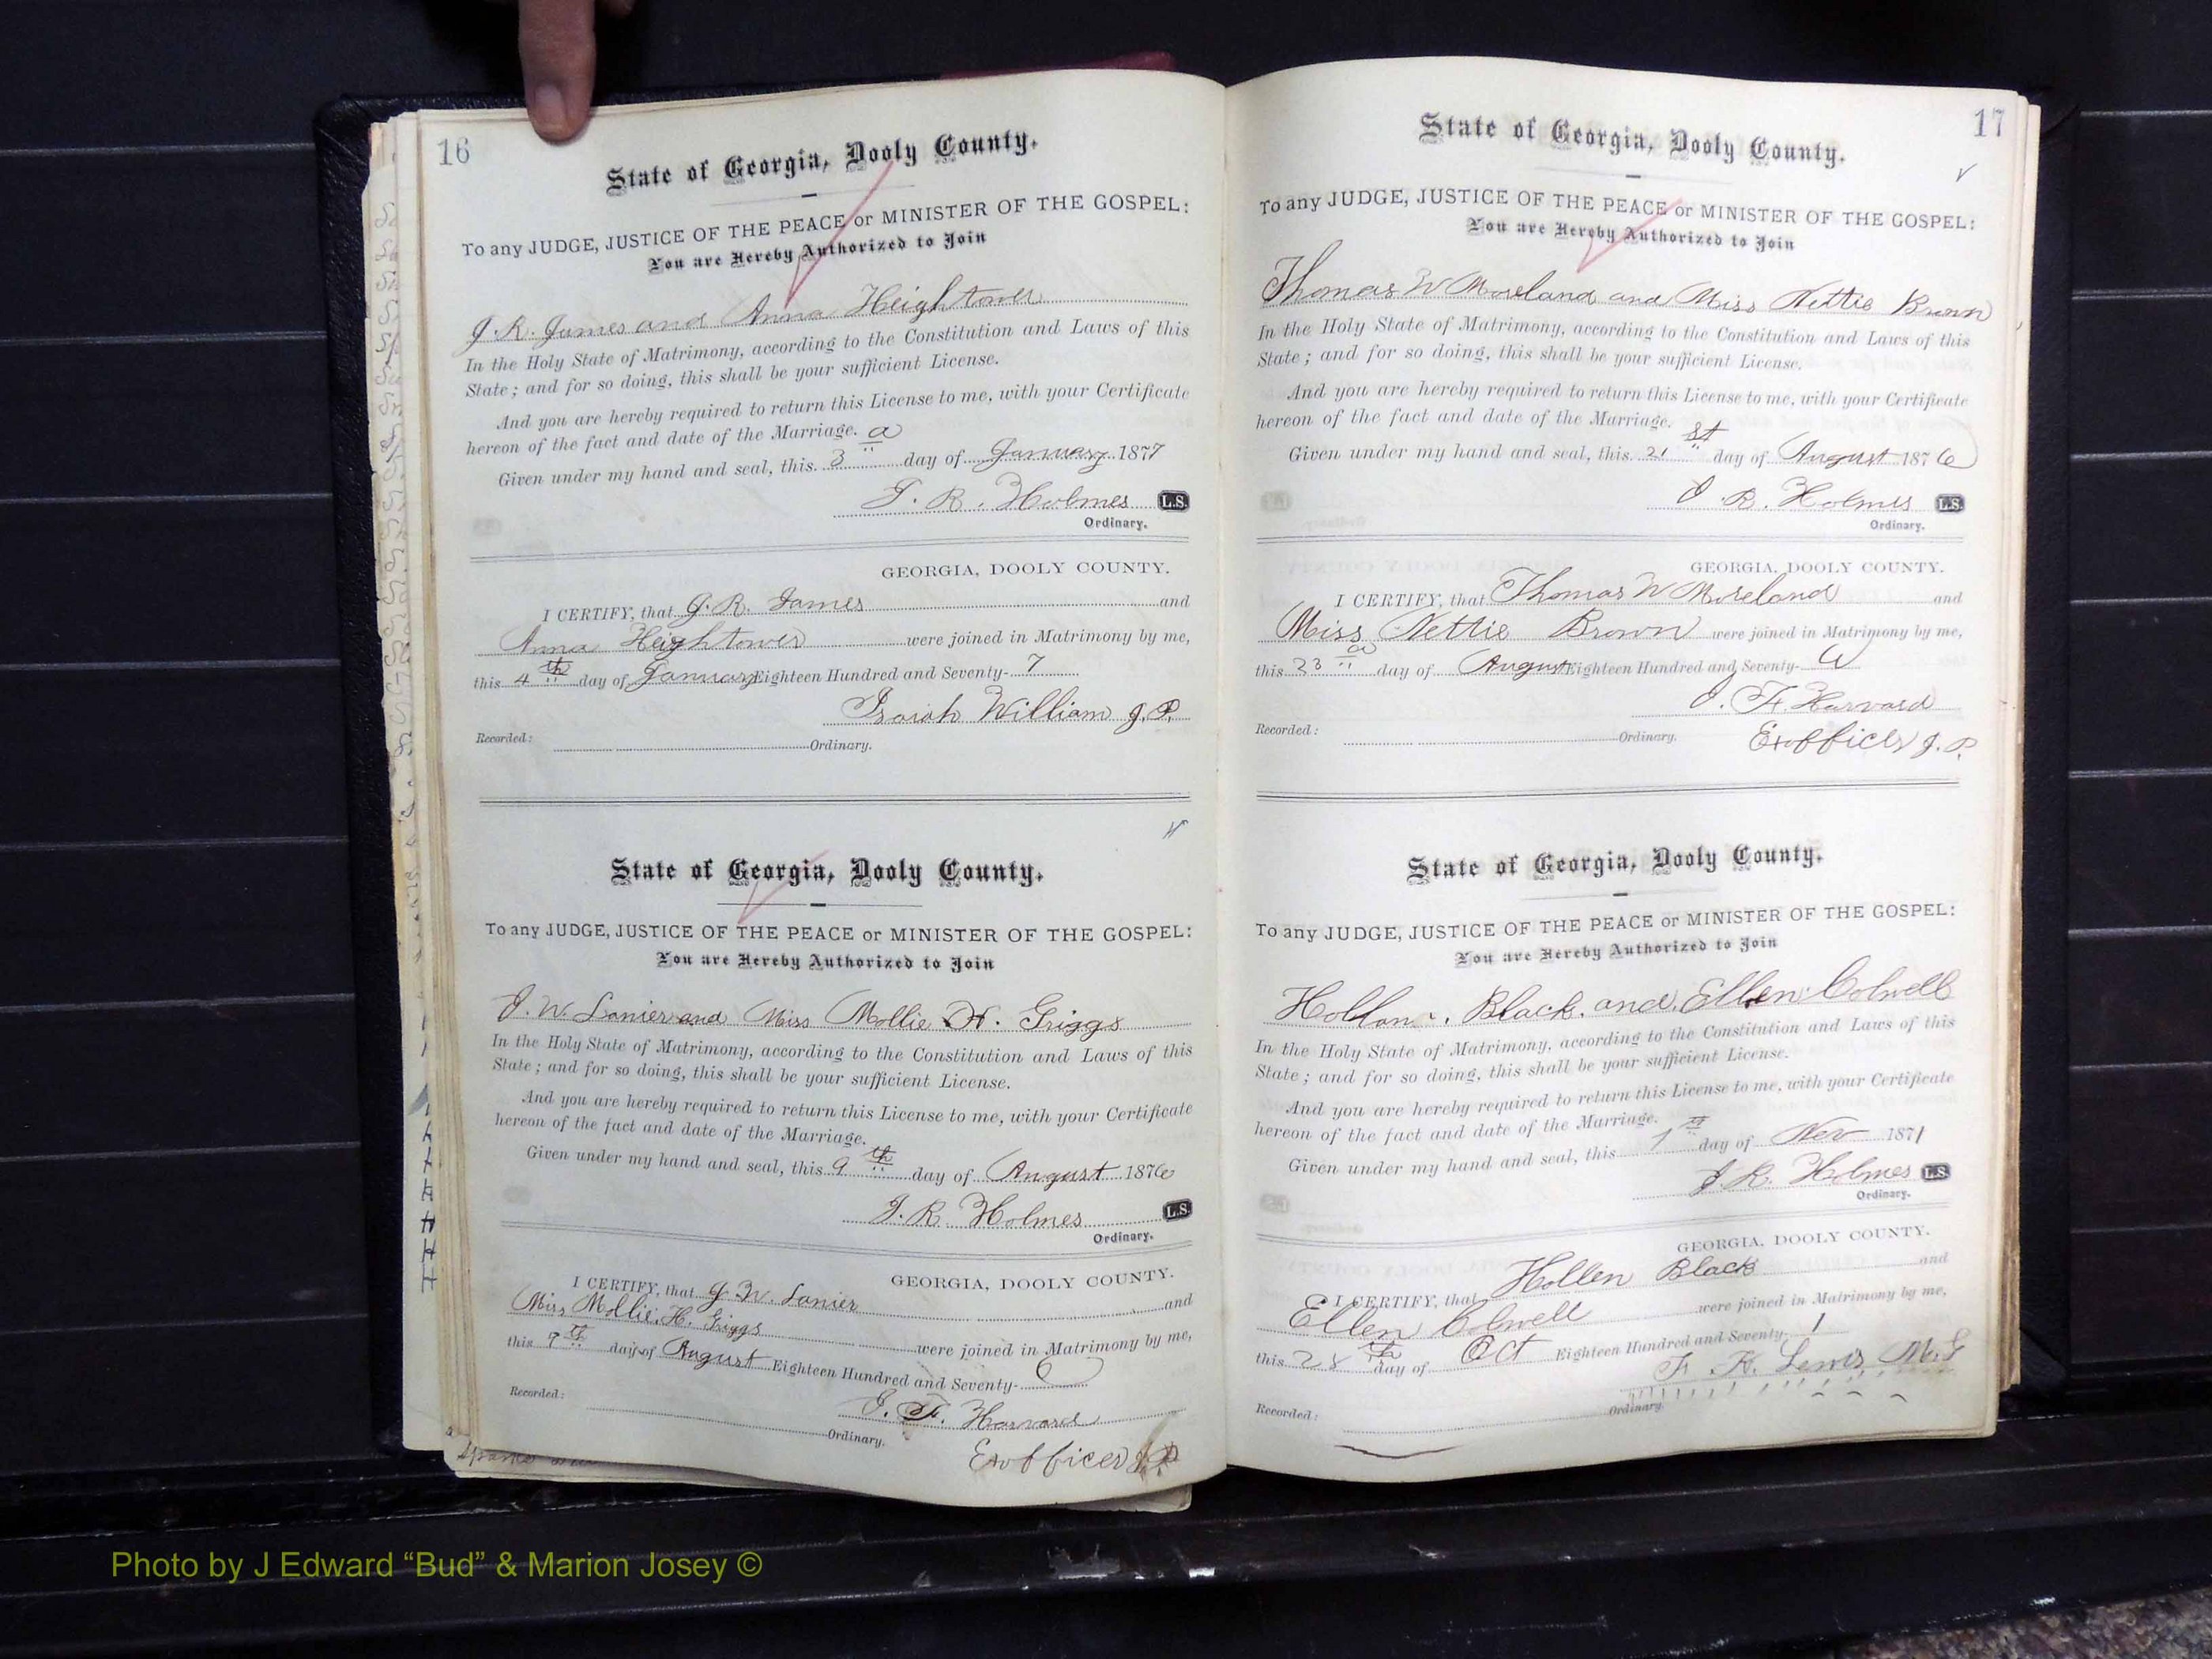 16
State of Georgia, Dooly County.
To any JUDGE, JUSTICE OF THE PEACE or MINISTER OF THE GOSPEL:
You are Hereby Authorized to Join
J. R. James and Anna Heightower
In the Holy State of Matrimony, according to the Constitution and Laws of this
State; and for so doing, this shall be your sufficient License.
And you are hereby required to return this License to me, with your Certificate
hereon of the fact and date of the Marriage.
Given under my hand and seal, this 3 d day of January 1877
J. R. Holmes L.S.
Ordinary.
GEORGIA, DOOLY COUNTY.
I CERTIFY, that J. R. James and
Anna Heightower were joined in Matrimony by me,
this 4 th day of January Eighteen Hundred and Seventy- 7
Isaiah William J. P.
Recorded: Ordinary.
State of Georgia, Dooly County.
To any JUDGE, JUSTICE OF THE PEACE or MINISTER OF THE GOSPEL:
You are Hereby Authorized to Join
J. W. Lanier and Miss Mollie H. Griggs
In the Holy State of Matrimony, according to the Constitution and Laws of this
State; and for so doing, this shall be your sufficient License.
And you are hereby required to return this License to me, with your Certificate
hereon of the fact and date of the Marriage.
Given under my hand and seal, this 9 th day of August 1876
J. R. Holmes L.S.
Ordinary.
GEORGIA, DOOLY COUNTY.
I CERTIFY, that J. W. Lanier and
Miss Mollie H. Griggs were joined in Matrimony by me,
this 9 th day of August Eighteen Hundred and Seventy- 6
J. F. Harvard
Recorded: Ordinary.
Exofficer J. P.
17
State of Georgia, Dooly County.
To any JUDGE, JUSTICE OF THE PEACE or MINISTER OF THE GOSPEL:
You are Hereby Authorized to Join
Thomas W Moreland and Miss Nettie Brown
In the Holy State of Matrimony, according to the Constitution and Laws of this
State; and for so doing, this shall be your sufficient License.
And you are hereby required to return this License to me, with your Certificate
hereon of the fact and date of the Marriage.
Given under my hand and seal, this 21 st day of August 1876
J. R. Holmes L.S.
Ordinary.
GEORGIA, DOOLY COUNTY.
I CERTIFY, that Thomas W Moreland and
Miss Nettie Brown were joined in Matrimony by me,
this 23 d day of August Eighteen Hundred and Seventy- 6
J. F. Harvard
Recorded: Ordinary. Exofficer J. P.
State of Georgia, Dooly County.
To any JUDGE, JUSTICE OF THE PEACE or MINISTER OF THE GOSPEL:
You are Hereby Authorized to Join
Hollon. Black. and Ellen Colwell
In the Holy State of Matrimony, according to the Constitution and Laws of this
State; and for so doing, this shall be your sufficient License.
And you are hereby required to return this License to me, with your Certificate
hereon of the fact and date of the Marriage.
Given under my hand and seal, this 1 st day of Nov 1871
J. R. Holmes L.S.
Ordinary.
GEORGIA, DOOLY COUNTY.
I CERTIFY, that Hollen Black and
Ellen Colwell were joined in Matrimony by me,
this 28 th day of Oct Eighteen Hundred and Seventy- 1
F. K. Lewis M. G
Recorded: Ordinary.
Photo by J Edward “Bud” & Marion Josey ©